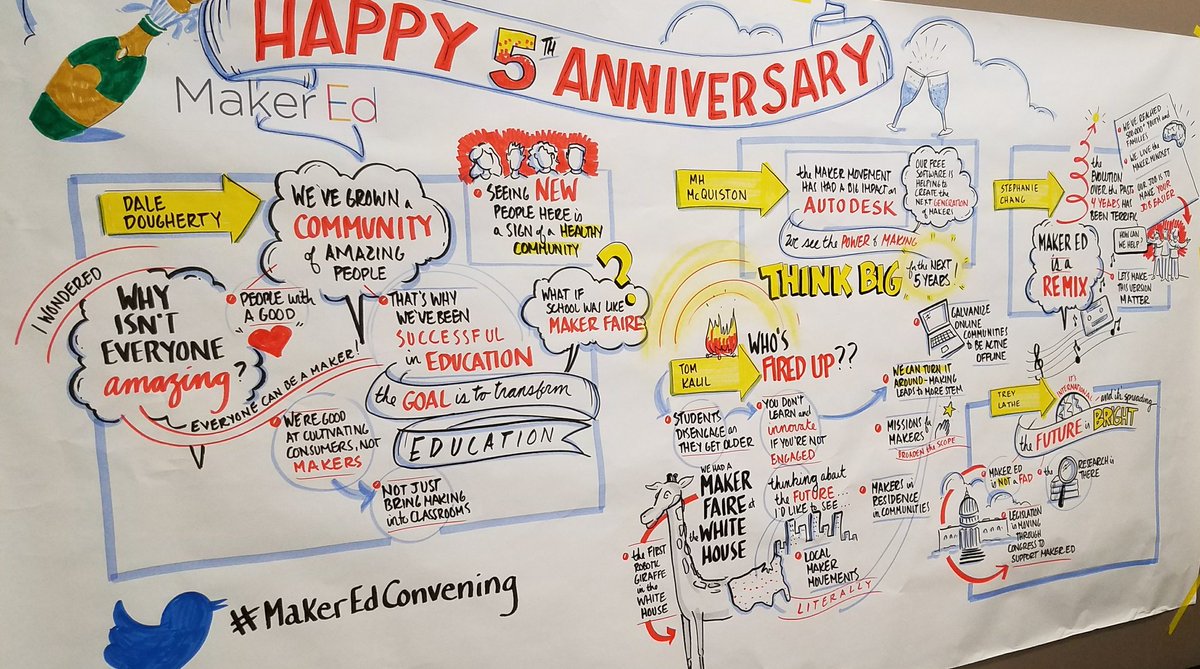 HAPPY 5TH ANNIVERSARY
Maker Ed
DALE
DOUGHERTY
WE'VE GROWN A
COMMUNITY
of AMAZING
PEOPLE
SEEING NEW
PEOPLE HERE is
A SIGN of a HEALTHY
COMMUNITY
I WONDERED
WHY
ISN'T
EVERYONE
amazing?
PEOPLE WITH
A GOOD
EVERYONE CAN BE A MAKER!
THAT'S WHY
WE'VE BEEN
SUCCESSFUL
in EDUCATION
WHAT IF
SCHOOL WAS LIKE
MAKER FAIRE
?
the GOAL is to transform
EDUCATION
WE'RE GOOD
AT CULTIVATING
CONSUMERS, NOT
MAKERS
NOT JUST
BRING MAKING
into CLASSROOMS
#MakerEdConvening
MH
McQUISTON
the MAKER MOVEMENT
HAS HAD A BIG IMPACT on
AUTODESK
OUR FREE
SOFTWARE IS
HELPING to
CREATE the
NEXT GENERATION
of MAKERS
We see the POWER of MAKING
THINK BIG
for the NEXT
5 YEARS!
TOM
KALIL
WHO'S
FIRED UP??
STUDENTS
DISENGAGE as
THEY GET OLDER
YOU DON'T
LEARN and
innovate
IF YOU'RE NOT
ENGAGED
WE CAN TURN IT
AROUND-MAKING
LEADS to MORE STEM
GALVANIZE
ONLINE
COMMUNITIES
to BE ACTIVE
OFFLINE
MISSIONS for
MAKERS
BROADEN the SCOPE
MAKERS in
RESIDENCE
in COMMUNITIES
WE HAD A
MAKER
FAIRE at
the WHITE
HOUSE
the FIRST
ROBOTIC
GIRAFFE
in the
WHITE
HOUSE
thinking about
the FUTURE...
I'D LIKE to SEE...
LOCAL
MAKER
MOVEMENTS
LITERALLY
STEPHANIE
CHANG
the
EVOLUTION
OVER the PAST
4 YEARS HAS
BEEN TERRIFIC
WE'VE REACHED
YOUTH and
FAMILIES
WE LIVE the
MAKER MINDSET
OUR JOB IS TO
MAKE YOUR
JOB EASIER
MAKER ED
is a
REMIX
HOW CAN
WE HELP?
LET'S MAKE
THIS VERSION
MATTER
TREY
LATHE
IT'S
INTERNATIONAL
and it's spreading
the FUTURE is BRIGHT
MAKER ED
is NOT a FAD
the RESEARCH is
THERE
LEGISLATION
is MOVING
THROUGH
CONGRESS to
SUPPORT MAKER ED